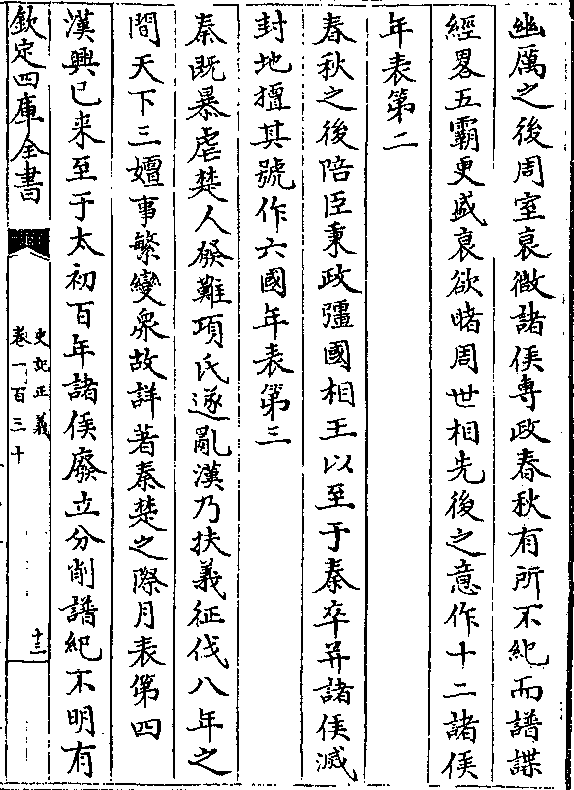 幽厲之後周室衰微諸侯專政春秋有所不紀而譜諜
經畧五霸更盛衰欲睹周世相先後之意作十二諸侯
年表第二
春秋之後陪臣秉政彊國相王以至于秦卒并諸侯滅
封地擅其號作六國年表第三
秦既暴虐楚人發難項氏遂亂漢乃扶義征伐八年之
間天下三嬗事繁變衆故詳著秦楚之際月表第四
漢興已来至于太初百年諸侯廢立分削譜紀不明有
欽定四庫全書
史記正義
卷一百三十
十三